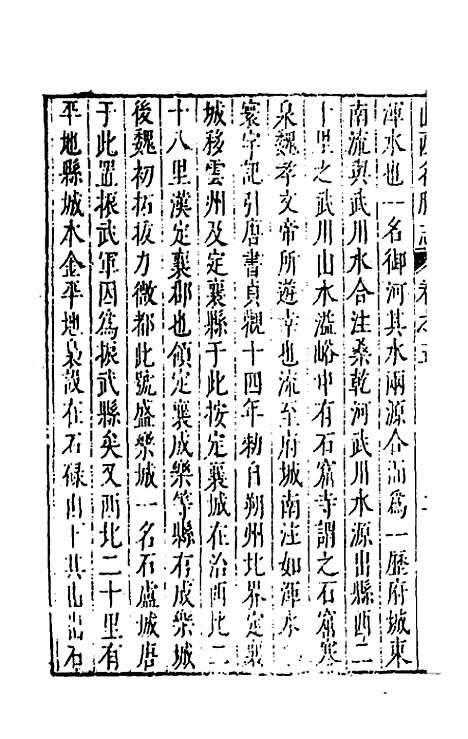 渾水也一名御河其水兩源合而爲一歷府城東
南流與武川水合注桑乾河武川水源出縣西二
十里之武川山水溢峪中有石窟寺謂之石窟寒
泉魏孝文帝所遊幸也流至府城南注如渾水
寰宇記引唐書貞觀十四年勅自朔州北界定襄
城移雲州及定襄縣于此按定襄城在治西北二
十八里漢定襄郡也領定襄成樂等縣有成樂城
後魏初拓拔力微都此號盛樂城一名石盧城唐
于此置振武軍因爲振武縣矣又西北二十里有
平地縣城本金平地裊設在石碌山下其山出石